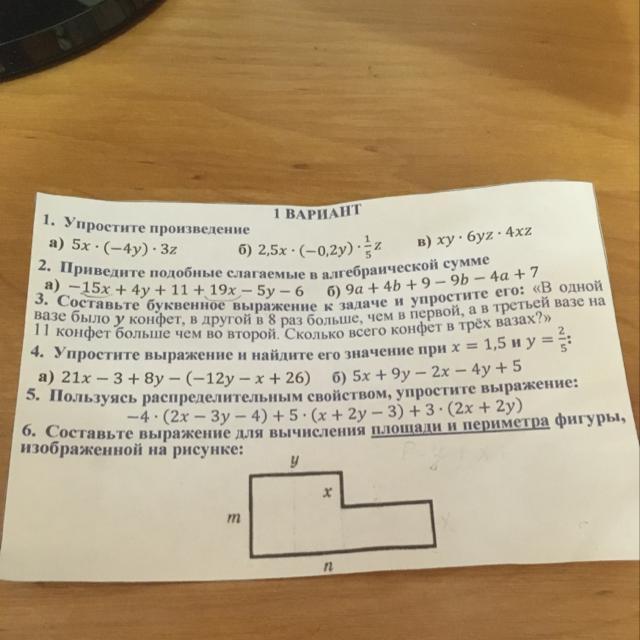 1 ВАРИАНТ
1. Упростите произведение
а) 5x · (−4y) · 3z б) 2,5x · (−0,2y) · 1/5 z в) xy · 6yz · 4xz
2. Приведите подобные слагаемые в алгебраической сумме
а) −15x + 4y + 11 + 19x − 5y − 6 б) 9a + 4b + 9 − 9b − 4a + 7
3. Составьте буквенное выражение к задаче и упростите его: «В одной
вазе было y конфет, в другой в 8 раз больше, чем в первой, а в третьей вазе на
11 конфет больше чем во второй. Сколько всего конфет в трёх вазах?»
4. Упростите выражение и найдите его значение при x = 1,5 и y = 2/5:
а) 21x − 3 + 8y − (−12y − x + 26) б) 5x + 9y − 2x − 4y + 5
5. Пользуясь распределительным свойством, упростите выражение:
−4 · (2x − 3y − 4) + 5 · (x + 2y − 3) + 3 · (2x + 2y)
6. Составьте выражение для вычисления площади и периметра фигуры,
изображенной на рисунке:
y
x
m
n